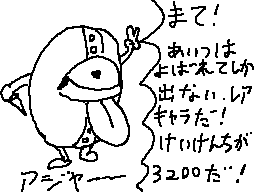 まて!
あいつは
よばれてしか
出ない、レア
キャラだ!
けいけんちが
3200だ!
アジャーー